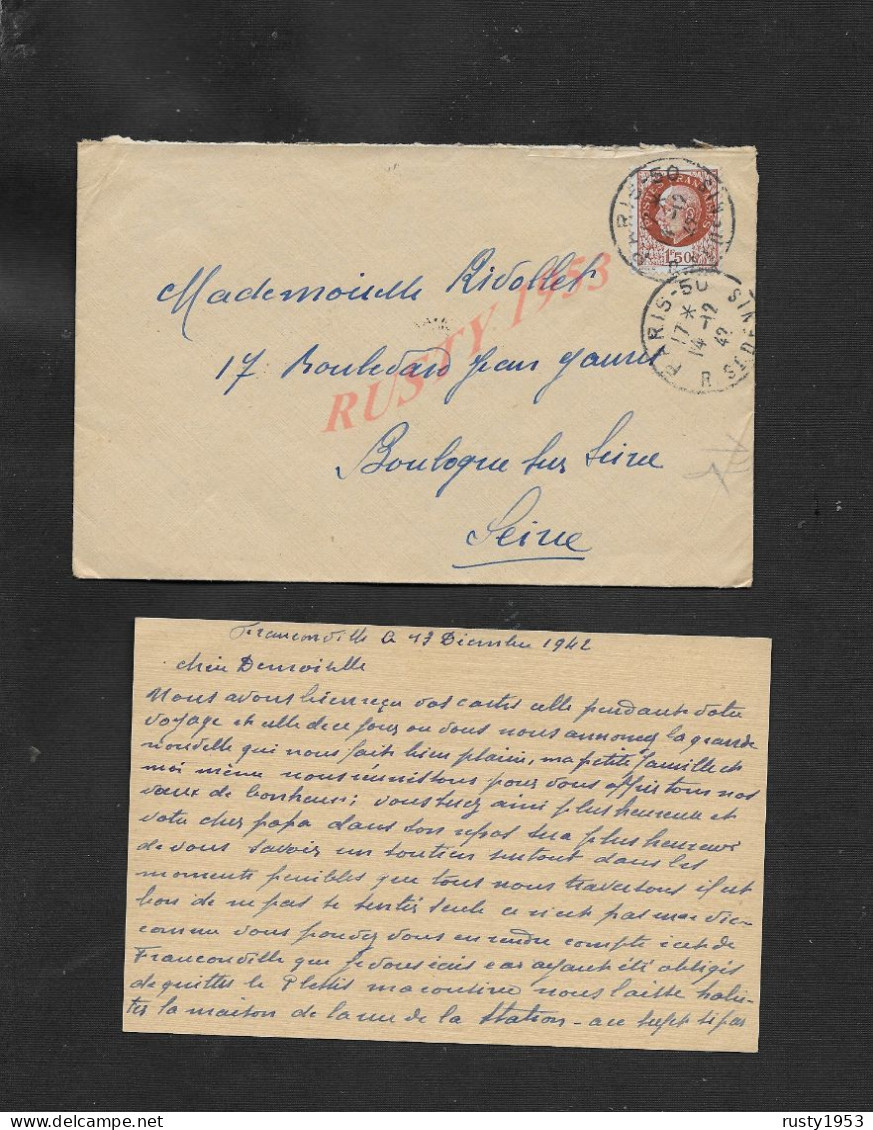 Mademoiselle Rivollet
17 Boulevard Jean Jaurès
Boulogne sur Seine
Seine
RUSTY 1953
POSTES FRANÇAISES
1F50
PARIS-50
R. ST DENIS
PARIS-50
17 *
14 -12
42
R. ST DENIS
Franconville le 13 Décembre 1942
chère Demoiselle
Nous avons bien reçu vos cartes celle pendant votre
voyage et celle de ce jour ou vous nous annoncez la grande
nouvelle qui nous fait bien plaisir, ma petite famille et
moi même nous réunissons pour vous offrir tous nos
vœux de bonheur; vous serez ainsi plus heureuse et
votre cher papa dans son repos sera plus heureux
de vous savoir un soutien surtout dans les
moments penibles que tous nous traversons il est
bon de ne pas se sentir seule ce n'est pas une vie
comme vous pouvez vous en rendre compte c'est de
Franconville que je vous écris car ayant été obligés
de quitter le Plessis ma cousine nous laisse habi-
ter la maison de la rue de la Station - au sujet
rusty1953